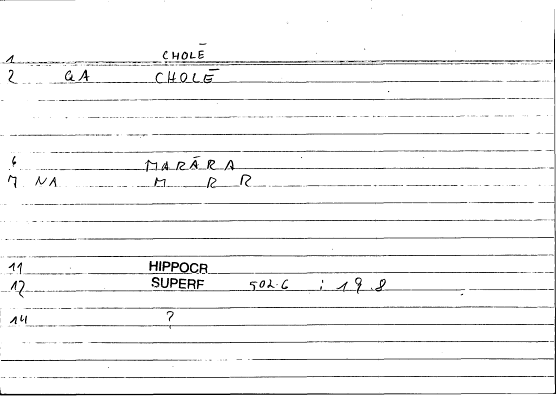 1 CHOLĒ
2 GA CHOLĒ
6 MARĀRA
7 NA M R R
11 HIPPOCR
12 SUPERF 502.6 : 19.8
14 ?